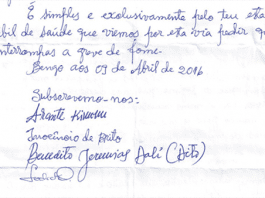 É simples e exclusivamente pelo teu esta
bil de saúde que viemos por esta via pedir q
nterrompas a greve de fome.
Bengo aos 09 de Abril de 2016
Subscrevemo-nos:
Inocêncio de Brito
Benedito Jeremias Dali (Dito)